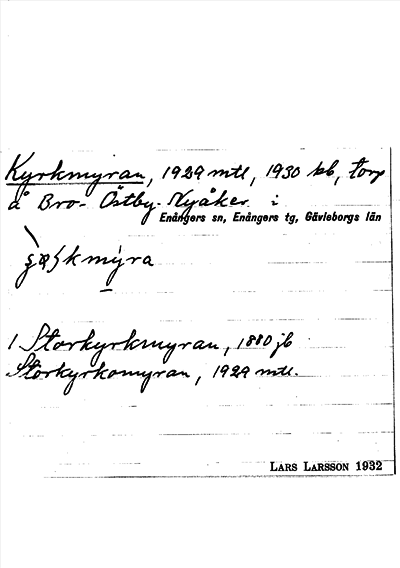 Kyrkmyran, 1929 mtl, 1930 kb, torp
å Bro- Östby- Nyåker i
Enångers sn, Enångers tg, Gävleborgs län
1 Storkyrkmyran, 1880 jb
Storkyrkomyran, 1929 mtl.
LARS LARSSON 1932